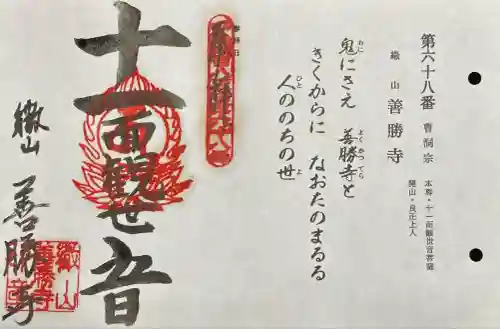 第六十八番 曹洞宗 本尊・十一面観世音菩薩
開山・良正上人
繖山 善勝寺
鬼にさえ 善勝寺と
おに よくかつてら
きくからに なおたのまるる
人ののちの世
ひと よ
十一面観世音
繖山 善勝寺
繖山
善勝寺